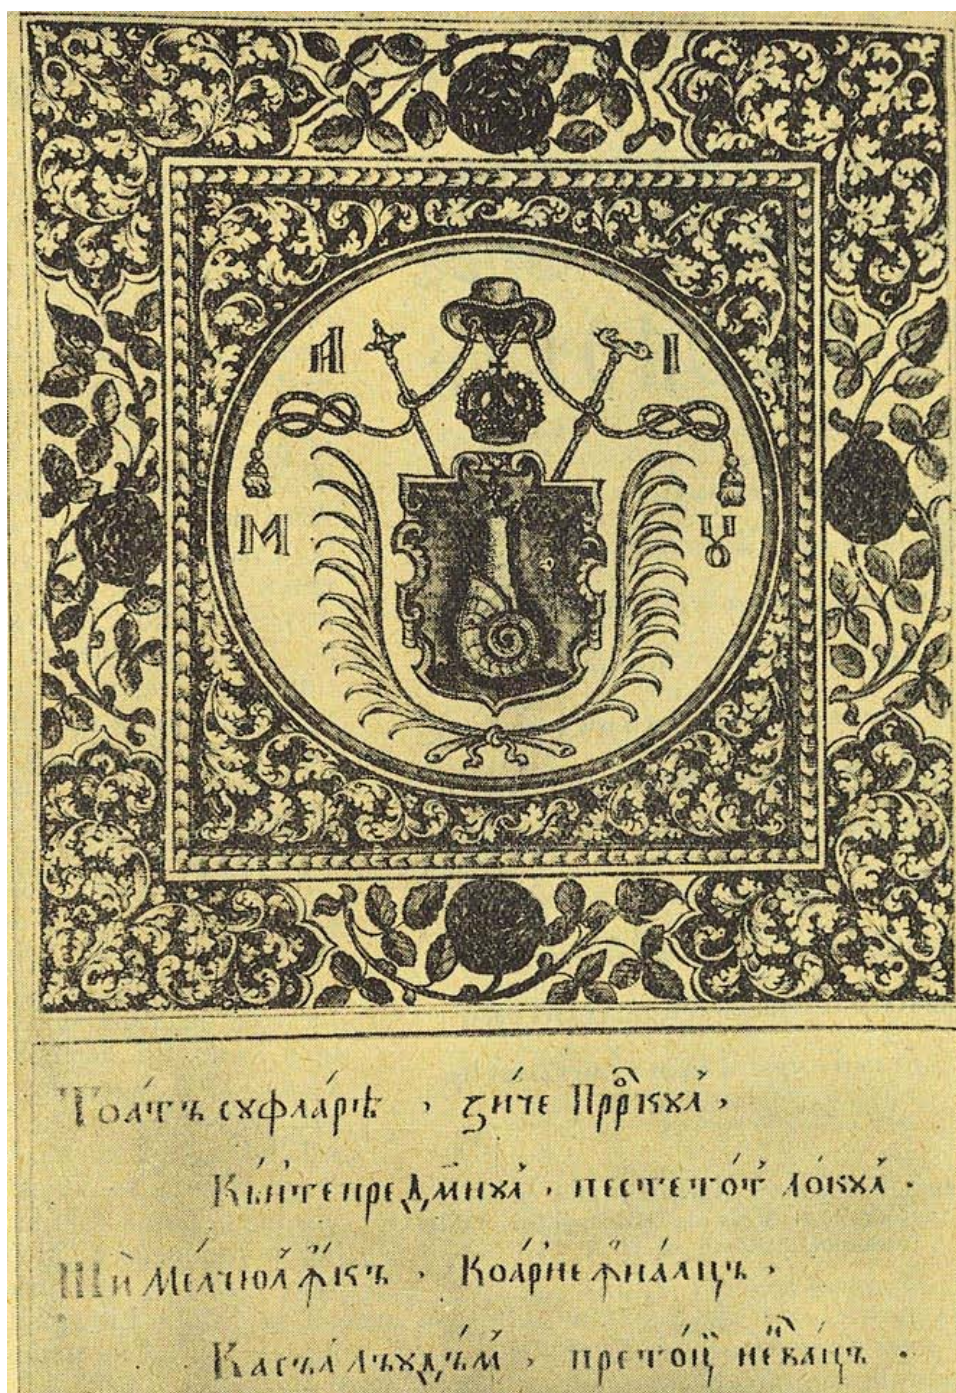 А І
М Ꙋ
Тоа́тъ сꙋфла́рѣ , зи́че Прⷪ҇ркꙋл ,
Кѫ́нте пре дм҃нꙋл , песте то́т ло́кꙋл .
Шѝ Ме́лчюл ꙟ҆къ , Коа́рне ꙟ҆на́лцъ ,
Ка съ́л лъꙋдъ́м , пре то́ци неⷩ҇ва́цъ .